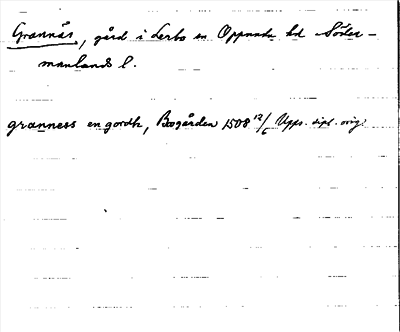 Grannäs, gård i Lerbo sn Oppunda hd Söder-
manlands l.
granness en gordh, Bogården 1508 12/6 Upps. dipl. orig.